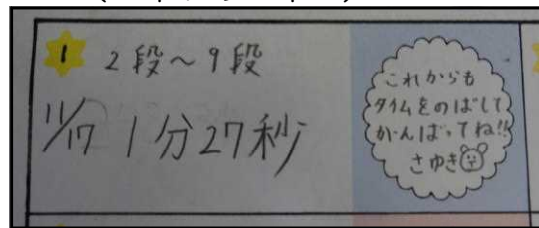 1 2段～9段
11/17 1分27秒
これからも
タイムをのばして
がんばってね!!
さゆき